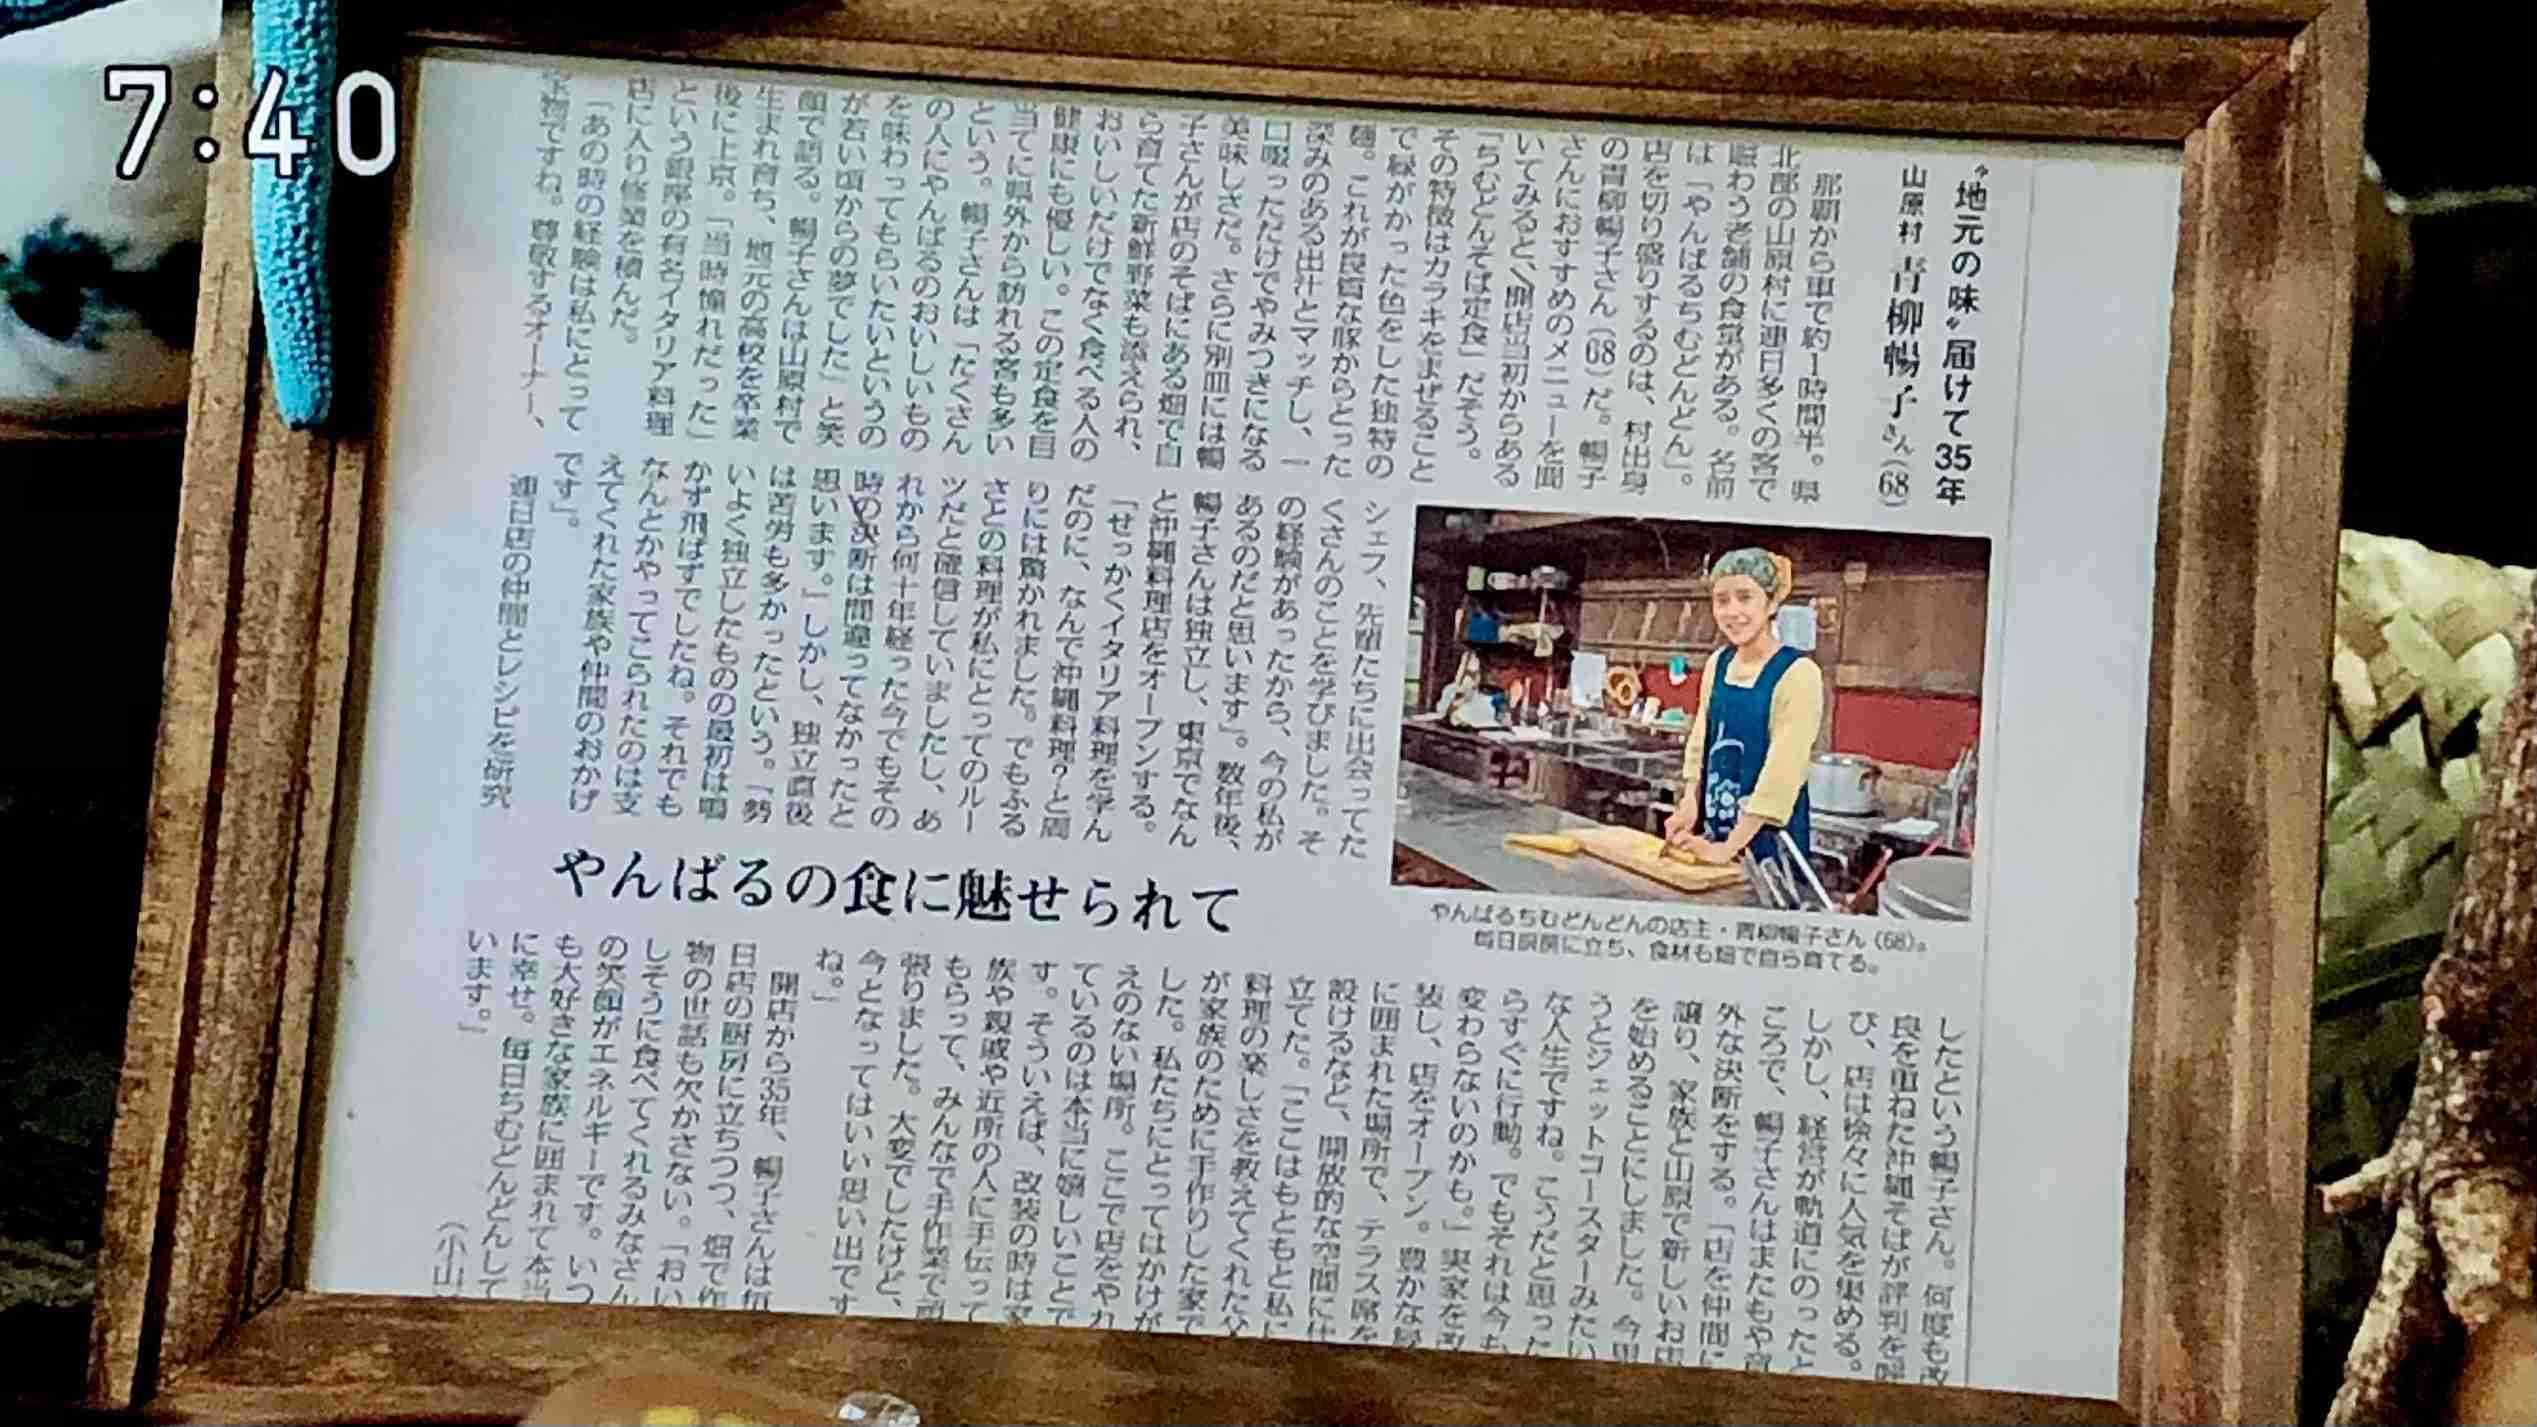 7:40
〝地元の味〟届けて35年
山原村 青柳暢子さん(68)
那覇から車で約1時間半。県
北部の山原村に連日多くの客で
賑わう老舗の食堂がある。名前
は「やんばるちむどんどん」。
店を切り盛りするのは、村出身
の青柳暢子さん(68)だ。暢子
さんにおすすめのメニューを聞
いてみると、開店当初からある
「ちむどんそば定食」だそう。
その特徴はカラキをまぜること
で緑がかった色をした独特の
麺。これが良質な豚からとった
深みのある出汁とマッチし、一
口啜っただけでやみつきになる
美味しさだ。さらに別皿には暢
子さんが店のそばにある畑で自
ら育てた新鮮野菜も添えられ、
おいしいだけでなく食べる人の
健康にも優しい。この定食を目
当てに県外から訪れる客も多い
という。暢子さんは「たくさん
の人にやんばるのおいしいもの
を味わってもらいたいというの
が若い頃からの夢でした」と笑
顔で語る。暢子さんは山原村で
生まれ育ち、地元の高校を卒業
後に上京。「当時憧れだった」
という銀座の有名イタリア料理
店に入り修業を積んだ。
「あの時の経験は私にとって
宝物ですね。尊敬するオーナー、
シェフ、先輩たちに出会ってた
くさんのことを学びました。そ
の経験があったから、今の私が
あるのだと思います」。数年後、
暢子さんは独立し、東京でなん
と沖縄料理店をオープンする。
「せっかくイタリア料理を学ん
だのに、なんで沖縄料理?と周
りには驚かれました。でもふる
さとの料理が私にとってのルー
ツだと確信していましたし、あ
れから何十年経った今でもその
時の決断は間違ってなかったと
思います。」しかし、独立直後
は苦労も多かったという。「勢
いよく独立したものの最初は鳴
かず飛ばずでしたね。それでも
なんとかやってこられたのは支
えてくれた家族や仲間のおかげ
です」。
連日店の仲間とレシピを研究
やんばるの食に魅せられて
やんばるちむどんどんの店主・青柳暢子さん(68)。
毎日厨房に立ち、食材も畑で自ら育てる。
したという暢子さん。何度も改
良を重ねた沖縄そばが評判を呼
び、店は徐々に人気を集める。
しかし、経営が軌道にのったと
ころで、暢子さんはまたもや意
外な決断をする。「店を仲間に
譲り、家族と山原で新しいお店
を始めることにしました。今思
うとジェットコースターみたい
な人生ですね。こうだと思った
らすぐに行動。でもそれは今も
変わらないのかも。」実家を改
装し、店をオープン。豊かな
に囲まれた場所で、テラス席を
設けるなど、開放的な空間に仕
立てた。「ここはもともと私に
料理の楽しさを教えてくれた父
が家族のために手作りした家で
した。私たちにとってはかけが
えのない場所。ここで店をやれ
ているのは本当に嬉しいことで
す。そういえば、改装の時は家
族や親戚や近所の人に手伝って
もらって、みんなで手作業で頑
張りました。大変でしたけど、
今となってはいい思い出です
ね。」
開店から35年、暢子さんは毎
日店の厨房に立ちつつ、畑で作
物の世話も欠かさない。「おい
しそうに食べてくれるみなさん
の笑顔がエネルギーです。いつ
も大好きな家族に囲まれて本当
に幸せ。毎日ちむどんどんして
います。」
(小山